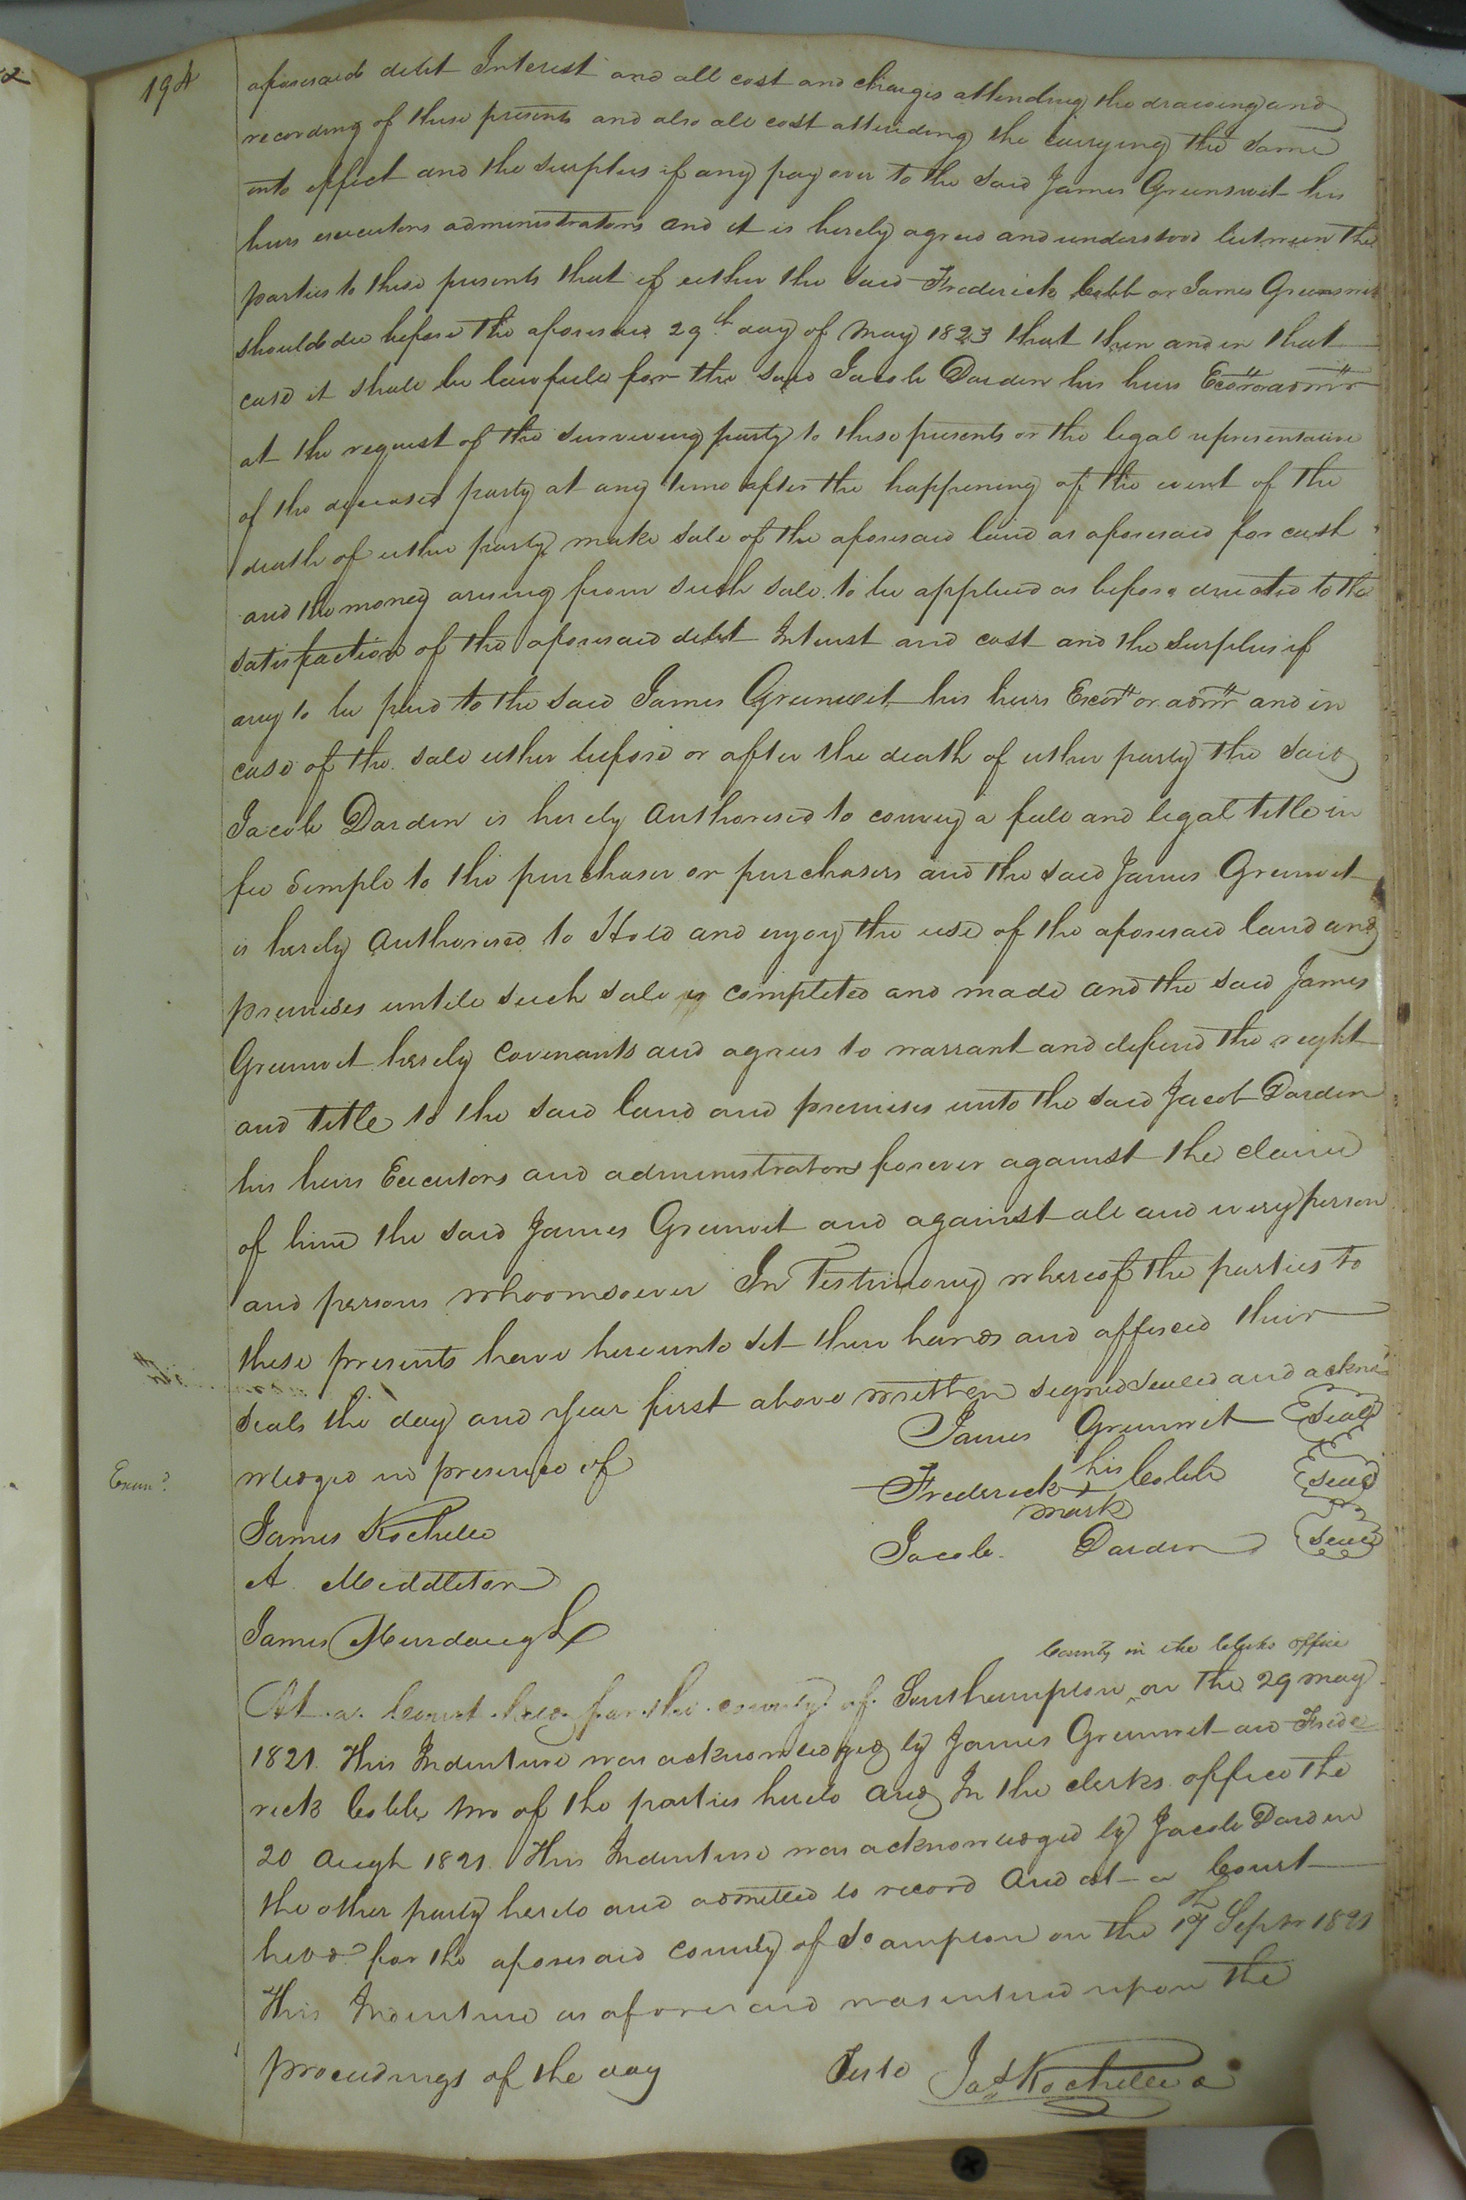 194
aforesaid debt Interest and all cost and charges attending the drawing and
recording of these presents and also all cost attending the carrying the same
into effect and the surplus if any pay over to the said James Greenwet his
heirs executors administrators and it is hereby agreed and understood between the
parties to these presents that if either the said Frederick Cobb or James Greenwet
should die before the aforesaid 29th day of May 1823 that then and in that
case it shall be lawfull for the said Jacob Darden his heirs Exors or admrs
at the request of the surviving party to these presents or the legal representative
of the deceased party at any time after the happening of the event of the
death of either party make sale of the aforesaid land as aforesaid for cash
and the money arising from such sale to be applied as before directed to the
satisfaction of the aforesaid debt Interest and cost and the surplus if
any to be paid to the said James Greenwet his heirs Exors or admrs and in
case of the sale either before or after the death of either party the said
Jacob Darden is hereby Authorised to convey a full and legal title in
fee Simple to the purchaser or purchasers and the said James Greenwet
is hereby Authorised to Hold and enjoy the use of the aforesaid land and
premises untill such sale is completed and made and the said James
Greenwet hereby Covenants and agrees to warrant and defend the right
and title to the said land and premises unto the said Jacob Darden
his heirs Executors and administrators forever against the claim
of him the said James Greenwet and against all and every person
and persons whoomsoever In Testimony whereof the parties to
these presents have hereunto set their hands and affixed their
seals the day and year first above written signed sealed and ackno
wledged in presence of
James Greenwet Seal
Exam.d
Frederick his mark Cobb Seal
James Rochelle
Jacob Darden Seal
A. Middleton
James Murdaugh
County in the Clerks office
At a Court held for the county of Southampton on the 29 May
1821 This Indenture was acknowledged by James Greenwet and Frede
rick Cobb two of the parties hereto and In the clerks office the
20 Augt 1821 This Indenture was acknowledged by Jacob Darden
the other party hereto and admitted to record And at a Court
held for the aforesaid County of So ampton on the 17th Septr 1821
This Indenture as aforesaid was entered upon the
proceedings of the day Teste Jas Rochelle c